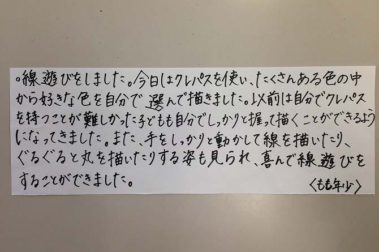 ○線遊びをしました。今日はクレパスを使い、たくさんある色の中
から好きな色を自分で選んで描きました。以前は自分でクレパス
を持つことが難しかった子どもも自分でしっかりと握って描くことができるよう
になってきました。また、手をしっかりと動かして線を描いたり、
ぐるぐると丸を描いたりする姿も見られ、喜んで線遊びを
することができました。
〈もも年少〉